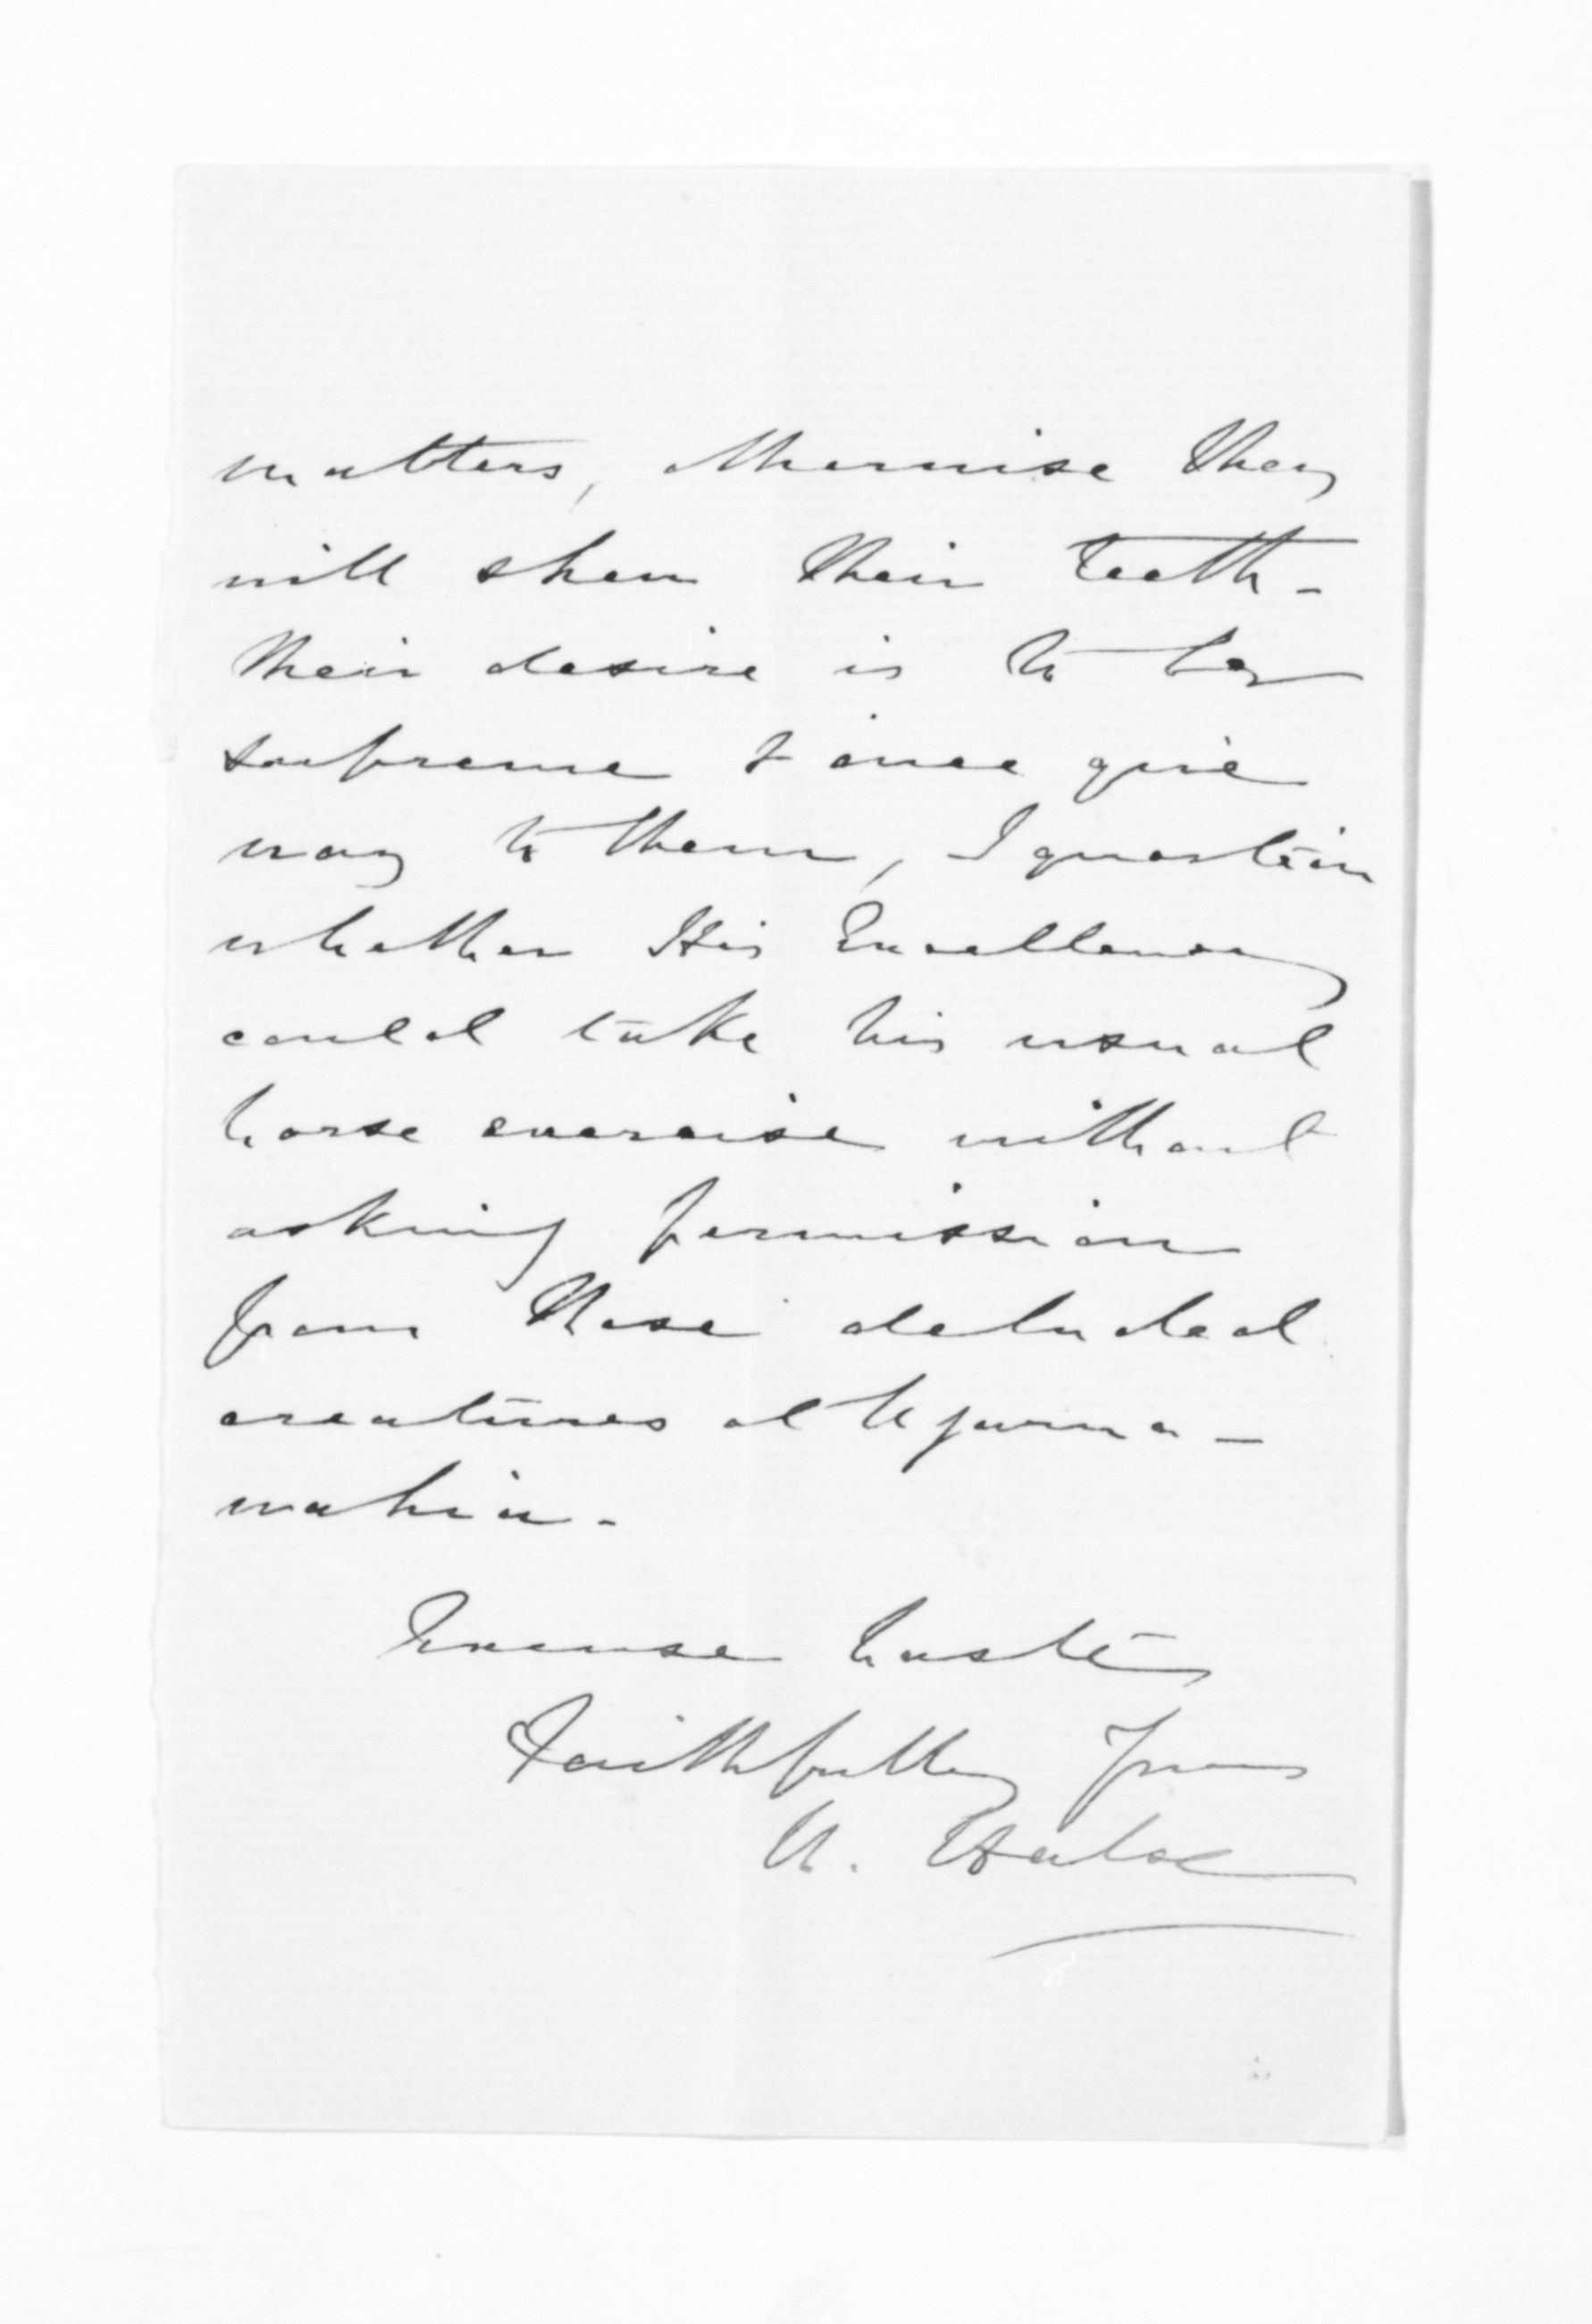 matters, otherwise they
will shew their teeth -
their desire is to be
supreme & once give
way to them, I question
whether His Excellency
could take his usual
horse exercise without
asking permission
from these deluded
creatures at Ngaurua -
wahia -
Excuse haste
Faithfully Yours
H. Halse